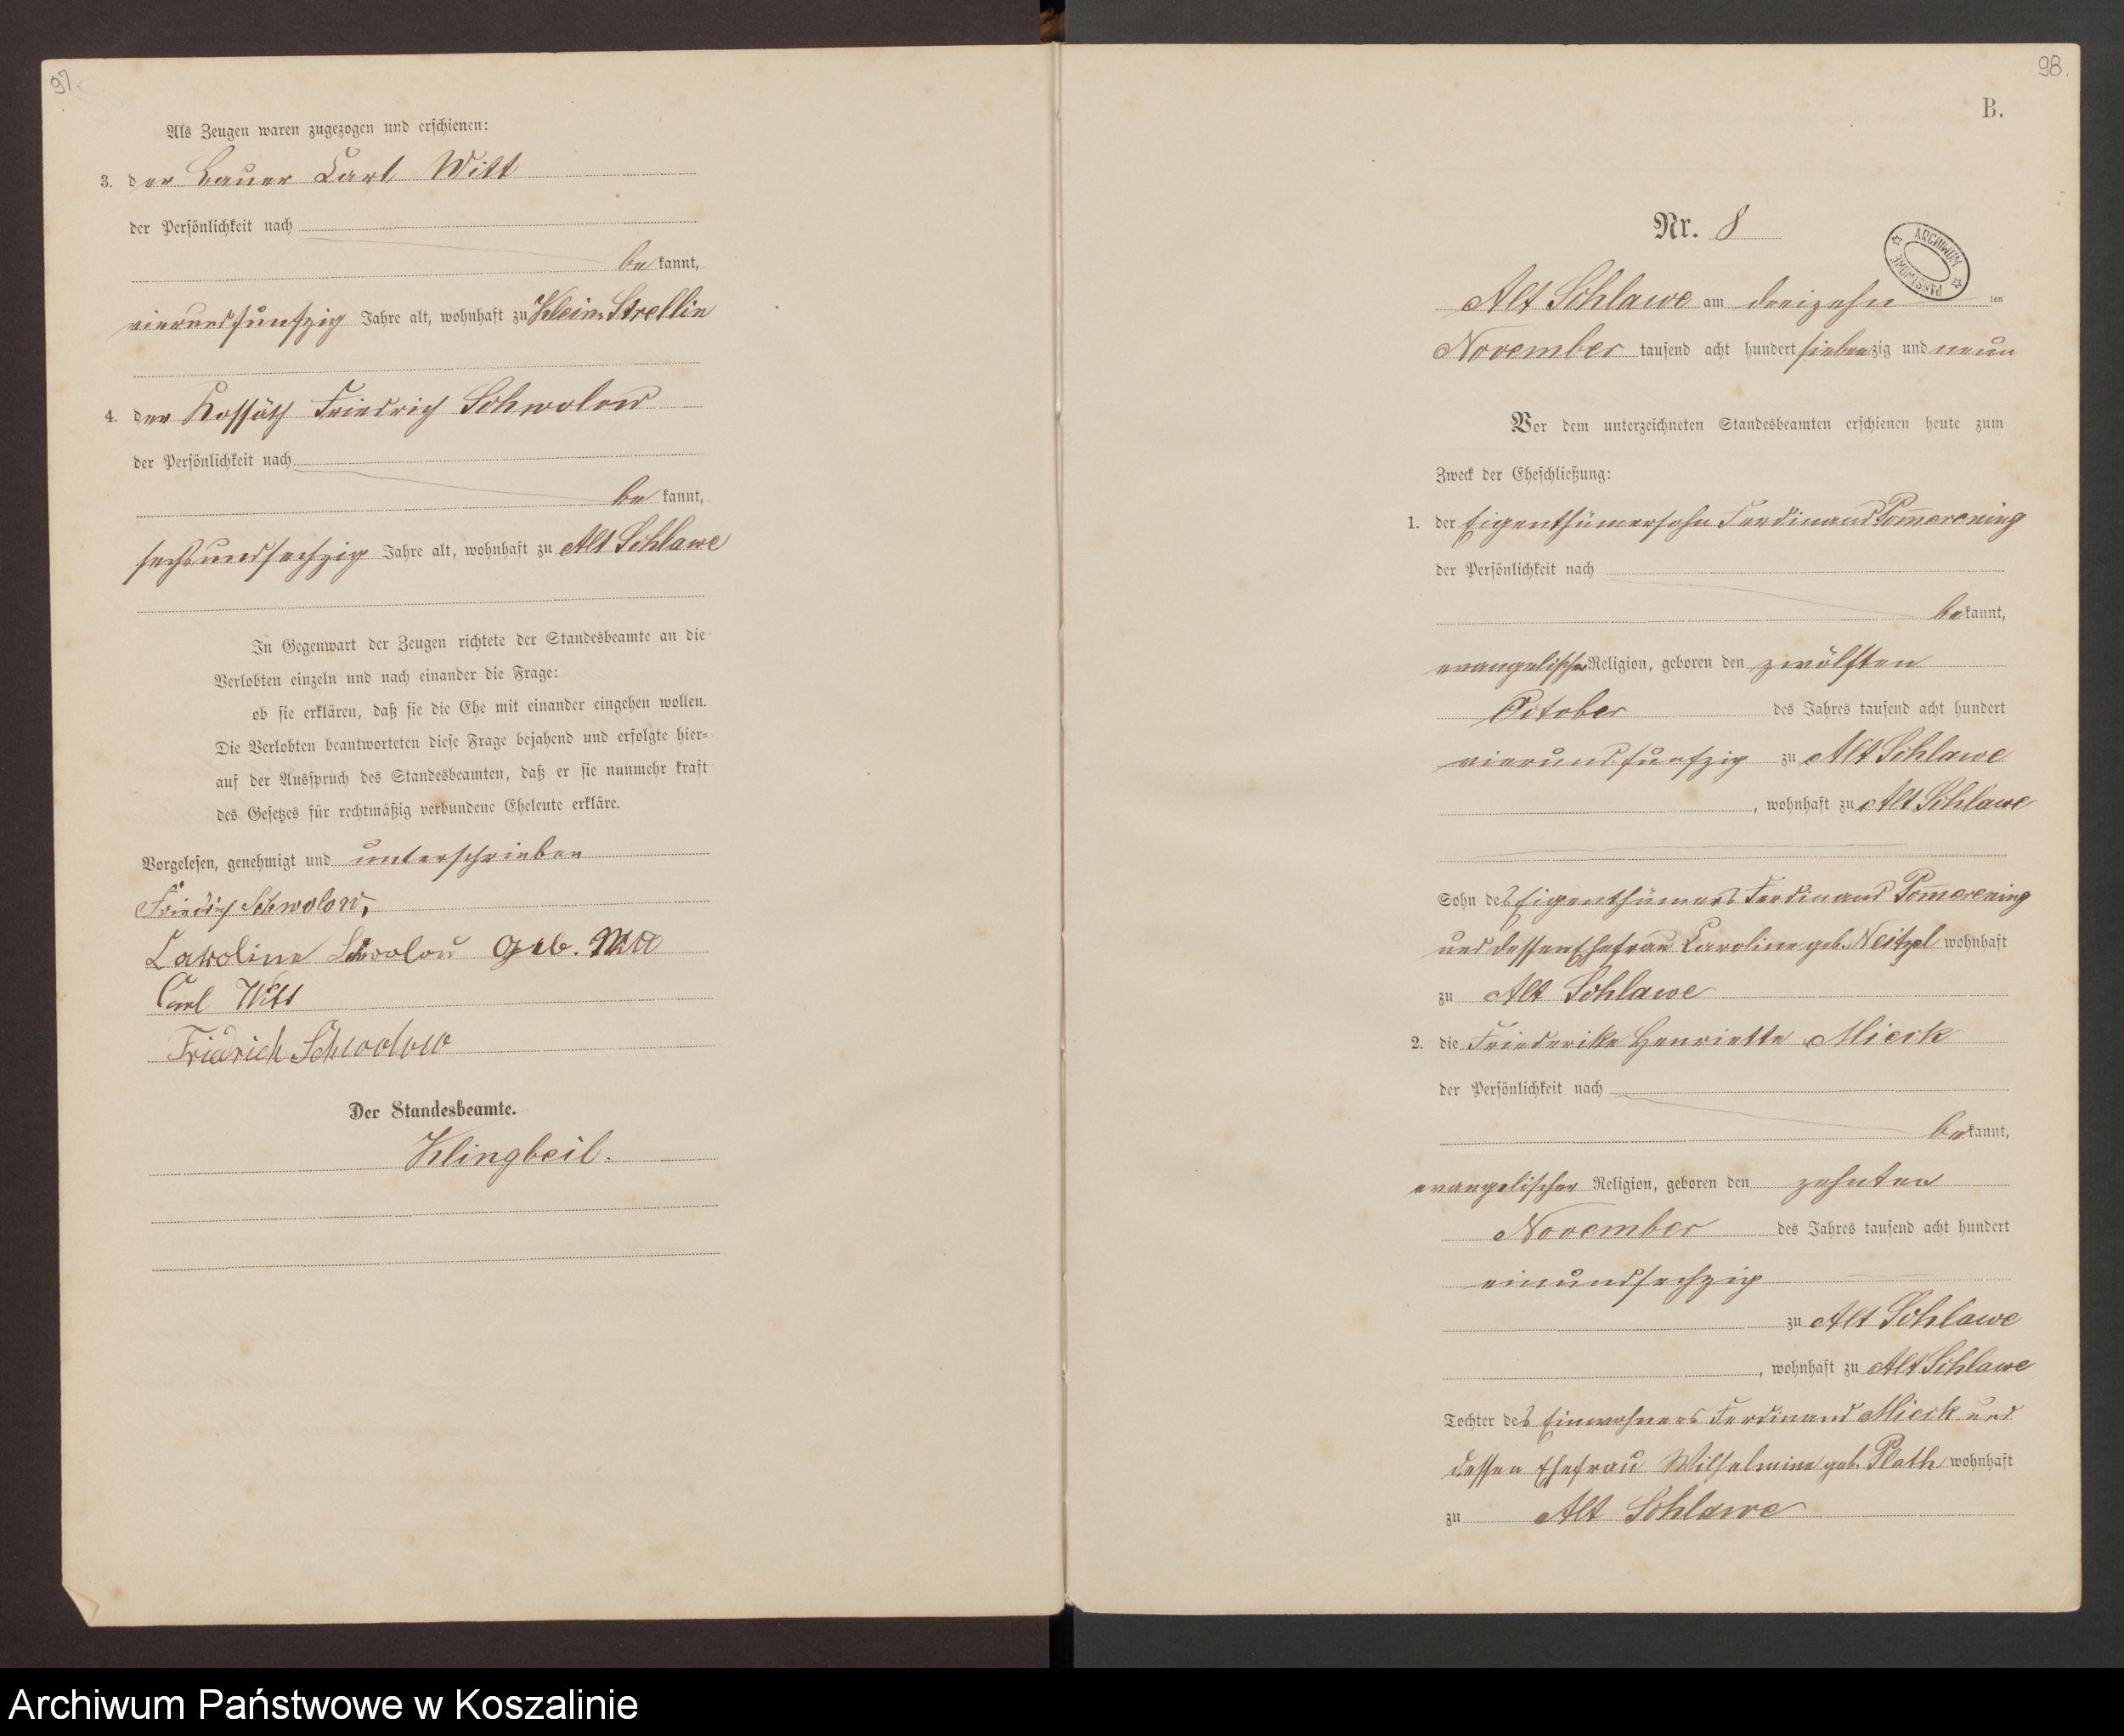 97.
Als Zeugen waren zugezogen und erschienen:
3. der Bauer Carl Witt
der Persönlichkeit nach
be kannt,
vierundfunfzig Jahre alt, wohnhaft zu Klein Strellin
4. der Kossäth Friedrich Schwolow
der Persönlichkeit nach
be kannt,
sechsundsechzig Jahre alt, wohnhaft zu Alt Schlawe
In Gegenwart der Zeugen richtete der Standesbeamte an die
Verlobten einzeln und nach einander die Frage:
ob sie erklären, daß sie die Ehe mit einander eingehen wollen.
Die Verlobten beantworteten diese Frage bejahend und erfolgte hier=
auf der Ausspruch des Standesbeamten, daß er sie nunmehr kraft
des Gesetzes für rechtmäßig verbundene Eheleute erkläre.
Vorgelesen, genehmigt und unterschrieben
Friedrich Schwolow,
Caroline Schwolow geb. Witt
Carl Witt
Friedrich Schwolow
Der Standesbeamte.
Klingbeil.
98.
B.
Nr. 8
ARCHIWUM PAŃSTWOWE
Alt Schlawe am dreizehn ten
November tausend acht hundert siebenzig und neun
Vor dem unterzeichneten Standesbeamten erschienen heute zum
Zweck der Eheschließung:
1. der Eigenthümersohn Ferdinand Pom̅erening
der Persönlichkeit nach
bekannt,
evangelischer Religion, geboren den zwölften
October des Jahres tausend acht hundert
vierundfunfzig zu Alt Schlawe
, wohnhaft zu Alt Schlawe
Sohn des Eigenthümers Ferdinand Pom̅erening
und dessen Ehefrau Caroline geb. Neitzel wohnhaft
zu Alt Schlawe
2. die Friederike Henriette Mieck
der Persönlichkeit nach
bekannt,
evangelischer Religion, geboren den zehnten
November des Jahres tausend acht hundert
einundsechzig
zu Alt Schlawe
, wohnhaft zu Alt Schlawe
Tochter des Einwohners Ferdinand Mieck und
dessen Ehefrau Wilhelmine geb. Plath wohnhaft
zu Alt Schlawe
Archiwum Państwowe w Koszalinie